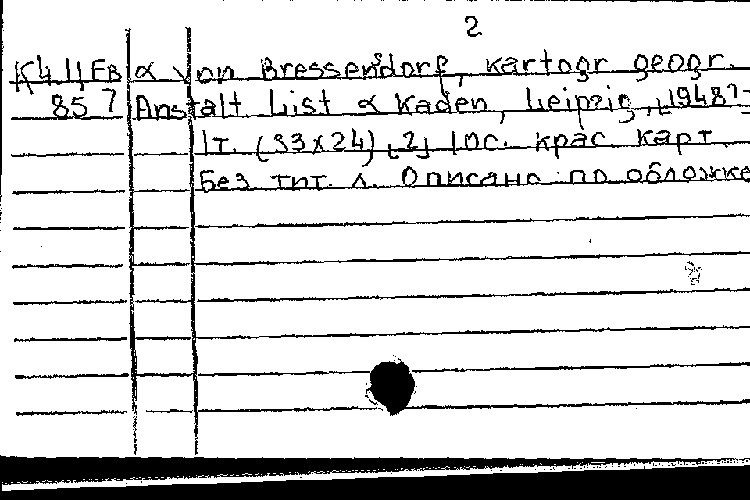 2
К4.11,ЕВ & von Bressendorf, Kartogr geogr.
85 7 Anstalt List & Kaden, Leipzig, [1948?-
1т. (33x24), [2] 10с. крас. карт
Без тит. л. Описано по обложке